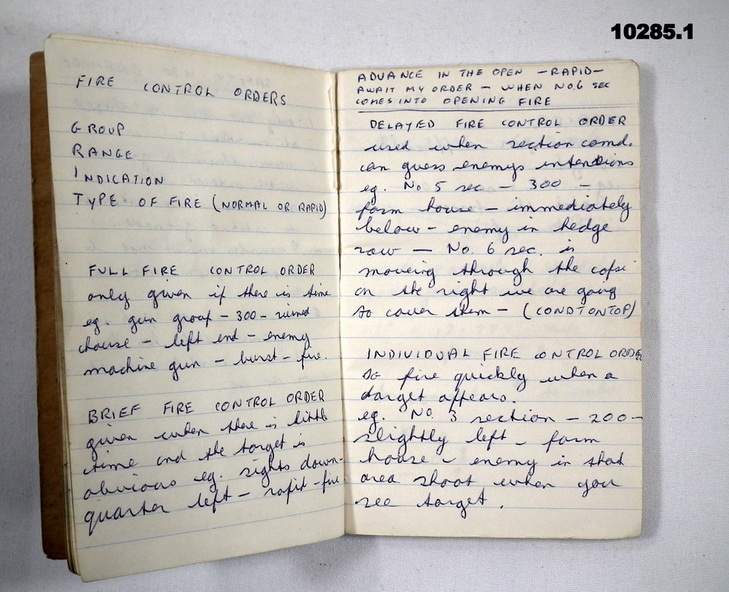 10285.1
FIRE CONTROL ORDERS
GROUP
RANGE
INDICATION
TYPE OF FIRE (NORMAL OR RAPID)
FULL FIRE CONTROL ORDER
only given if there is time
eg. gun group - 300 - ruined
house - left end - enemy
machine gun - burst - fire.
BRIEF FIRE CONTROL ORDER
given when there is little
time and the target is
obvious eg. sights down-
quarter left - rapit - fire
ADVANCE IN THE OPEN -RAPID-
AWAIT MY ORDER - WHEN NO.6 SEC
COMES INTO OPENING FIRE
DELAYED FIRE CONTROL ORDER
used when section comd.
can guess enemys intentions
eg. No 5 sec - 300 -
farm house - immediately
below - enemy in hedge
row - No. 6 sec. is
moveing through the copse
on the right we are going
to cover them - (CONDTONTOP)
INDIVIDUAL FIRE CONTROL ORDE
fire quickly when a
target appears.
eg. No. 3 section - 200-
slightly left - farm
house - enemy in that
area shoot when you
see target.